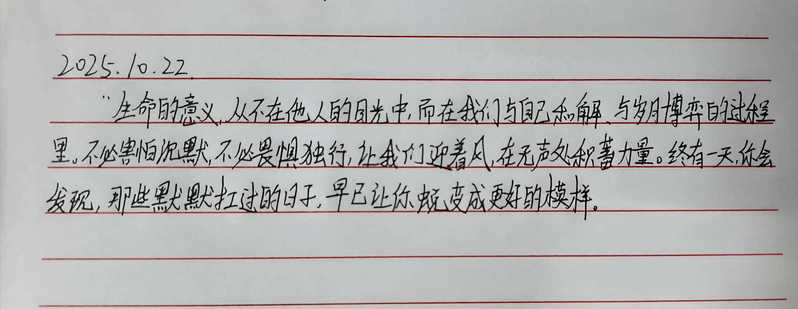 2025.10.22
“生命的意义,从不在他人的目光中,而在我们与自己和解、与岁月博弈的过程
里。不必害怕沉默,不必畏惧独行,让我们迎着风,在无声处积蓄力量。终有一天,你会
发现,那些默默扛过的日子,早已让你蜕变成更好的模样。